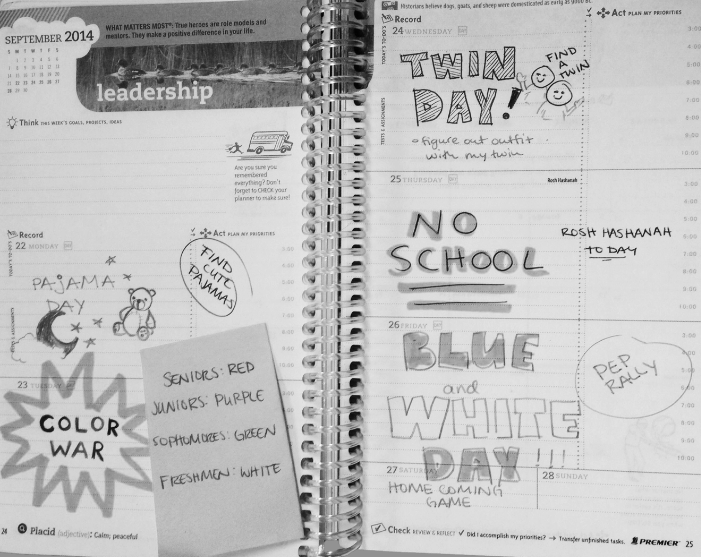 SEPTEMBER 2014
S M T W T F S
WHAT MATTERS MOST®: True heroes are role models and
mentors. They make a positive difference in your life.
leadership
Think THIS WEEK'S GOALS, PROJECTS, IDEAS
Are you sure you
remembered
everything? Don't
forget to CHECK your
planner to make sure!
Record
Act PLAN MY PRIORITIES
22 MONDAY
PAJAMA
DAY
FIND
CUTE
PAJAMAS
23 TUESDAY
COLOR
WAR
SENIORS: RED
JUNIORS: PURPLE
SOPHOMORES: GREEN
FRESHMEN: WHITE
24
Placid (adjective): Calm; peaceful
Historians believe dogs, goats, and sheep were domesticated as early as
Record
Act PLAN MY PRIORITIES
TODAY'S TO-DO'S
TESTS & ASSIGNMENTS
24 WEDNESDAY
TWIN
DAY!
FIND
A
TWIN
figure out outfit
with my twin
25 THURSDAY
Rosh Hashanah
NO
SCHOOL
ROSH HASHANAH
TODAY
26 FRIDAY
BLUE
and
WHITE
DAY!!!
PEP
RALLY
27 SATURDAY
HOME COMING
GAME
28 SUNDAY
Check REVIEW & REFLECT ✓ Did I accomplish my priorities? → Transfer unfinished tasks.
PREMIER 25